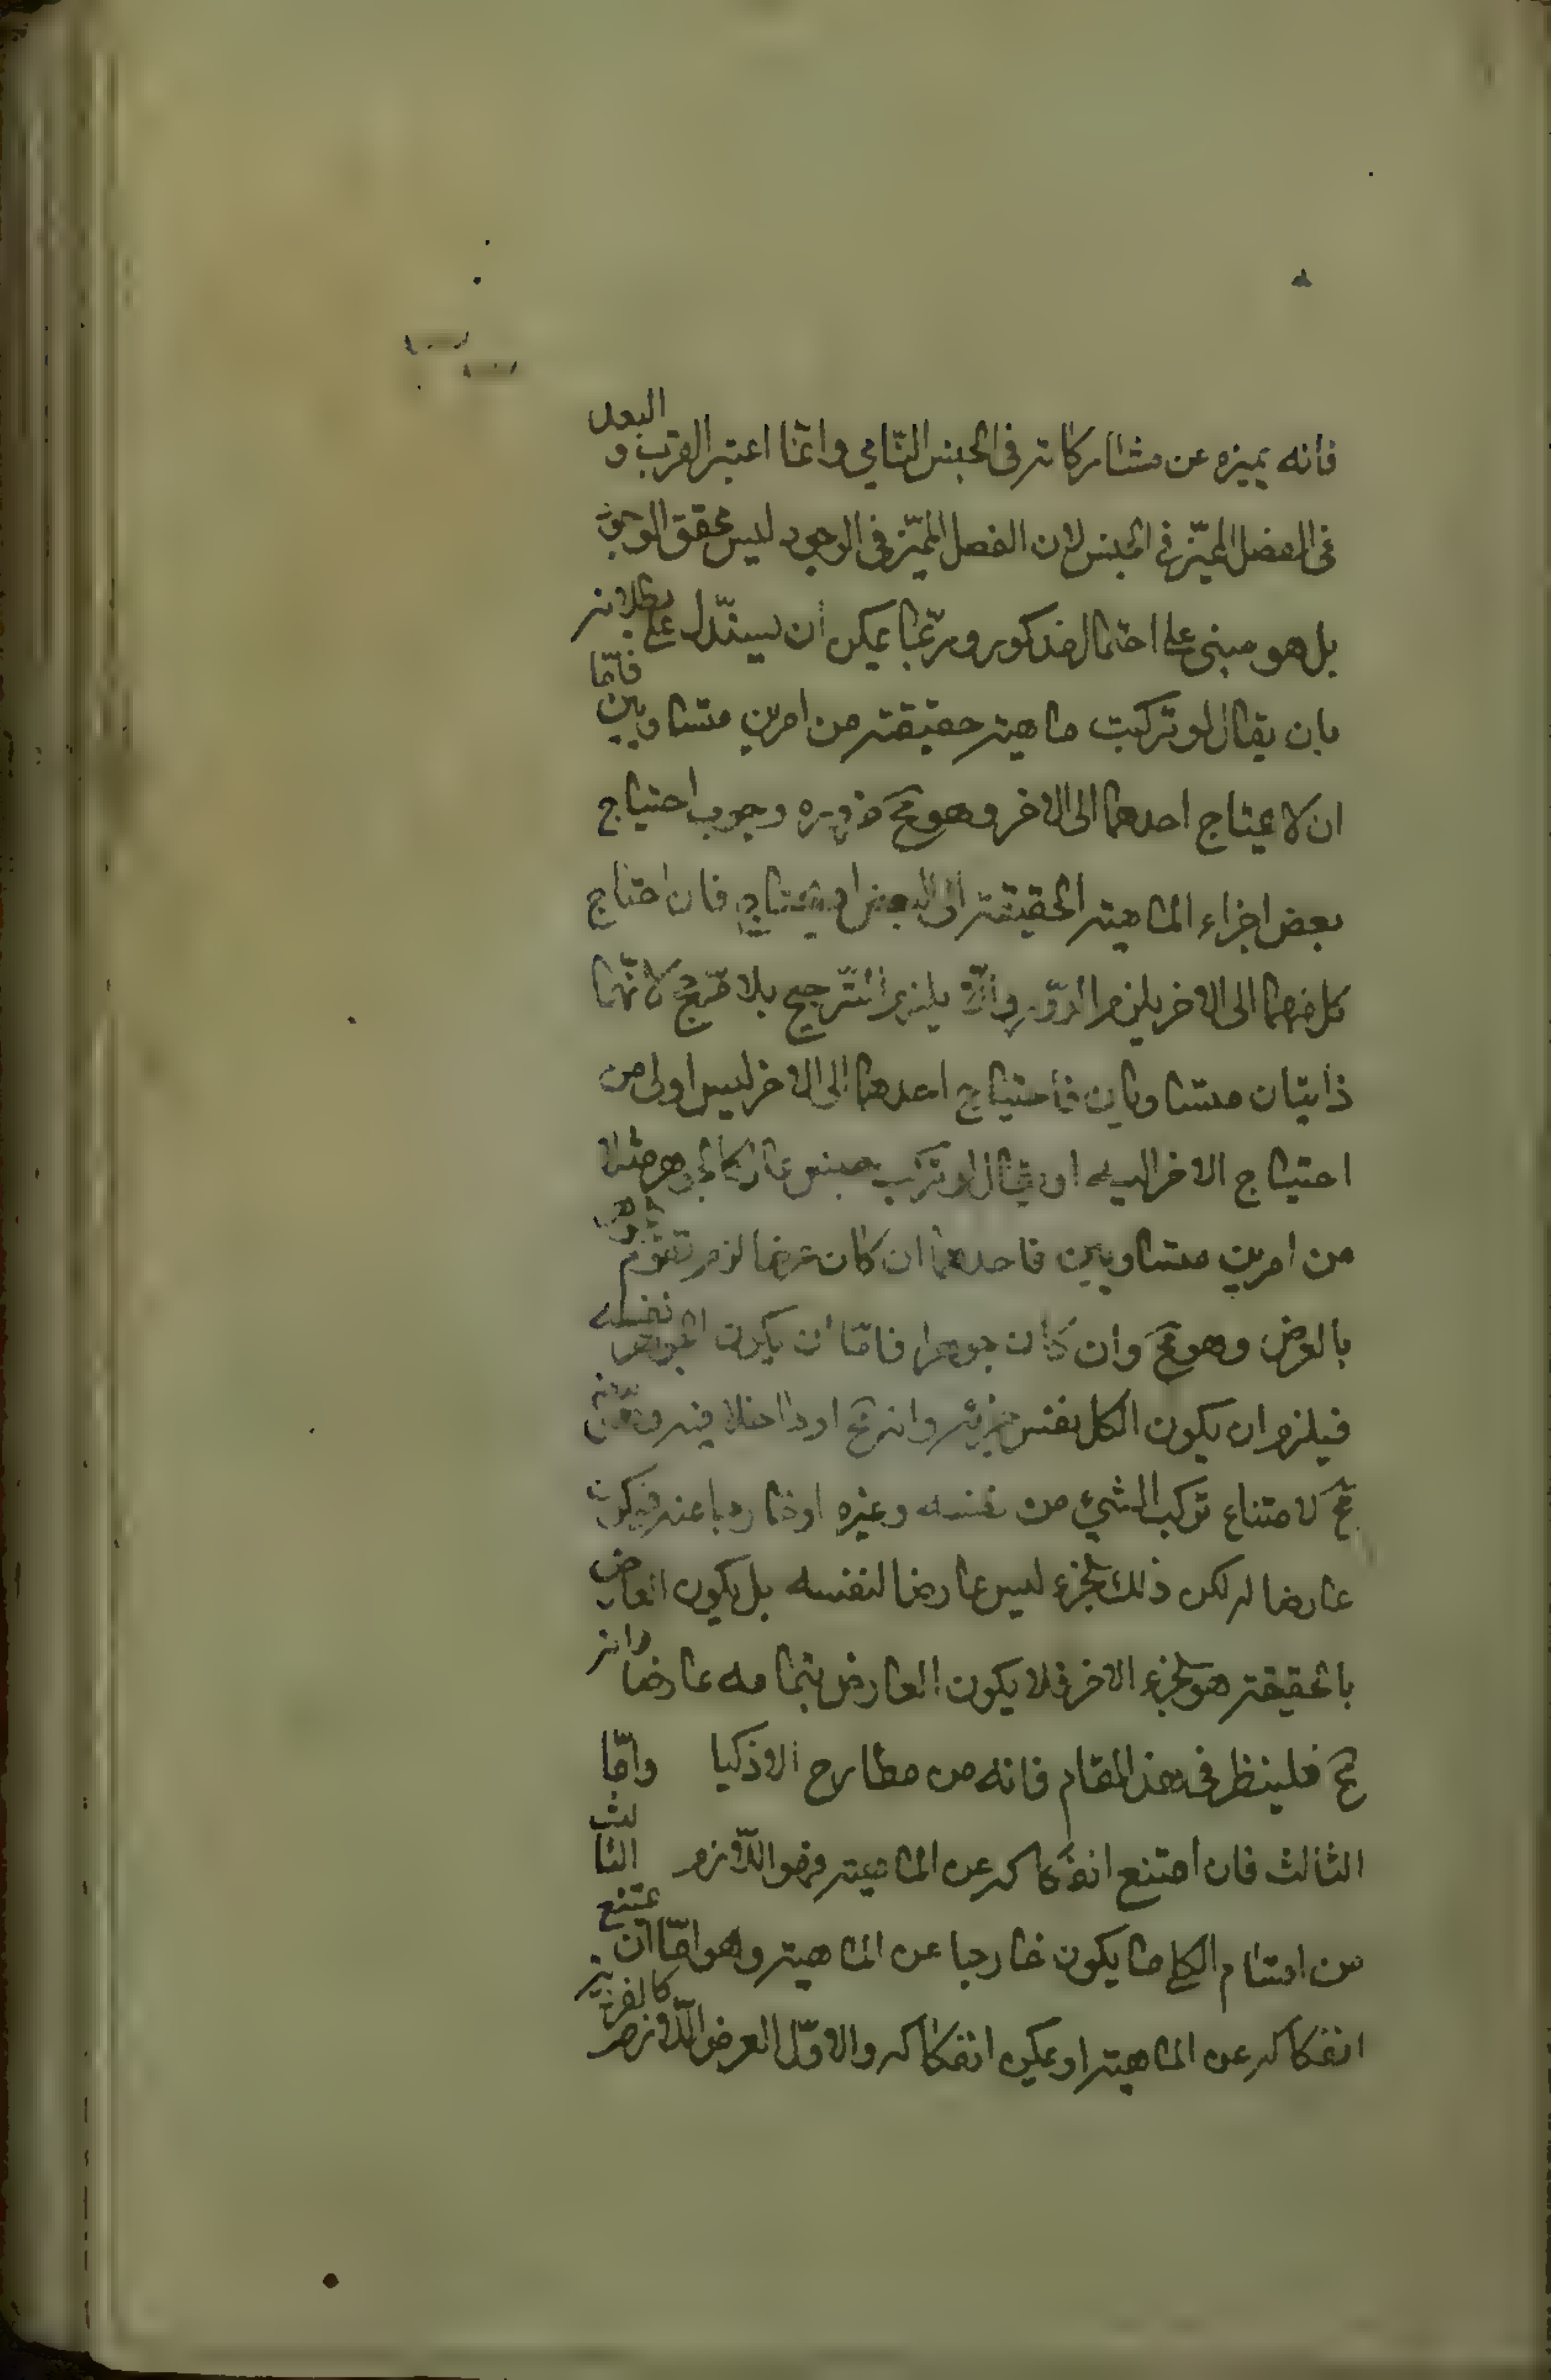 فانه يميزه عن مشاركاته فى الجنس النّامي وانّما اعتبر القرب و البعد
فى الفصل المميّز فى الجنس لان الفصل المميّز فى الوجود ليس محقق الوجود
بل هو مبنى على احتمال مذكور وربّما يمكن أن يستدّل على بطلانه
بان يقال لو تركبت ماهية حقيقته من امرين متساويين فامّا
ان لا يحتاج احدهما الى الاخر وهو مح ضرورة وجوب احتياج
بعض اجزاء الماهية الحقيقته الى البعض او يحتاج فان احتاج
كل منهما الى الاخر يلزم الدّور والّا يلزم التّرجيح بلا مرّجح لانّهما
ذاتيان متساويان فاحتياج احدهما الى الاخر ليس اولى من
احتياج الاخر اليه او يقال لو تركب جنس عال كالجوهر مثلا
من امرين متساويين فاحدهما ان كان عرضا لزم تقوّم الجوهر
بالعرض وهو مح وان كان جوهرا فامّا ان يكون الجوهر نفسه
فيلزم ان يكون الكل نفس جزئه وانه مح او داخلا فيه و
مح لامتناع تركب الشئ من نفسه وغيره او خارجا عنه فيكون
عارضا له لكن ذلك الجزء ليس عارضا لنفسه بل يكون العارض
بالحقيقة هو الجزء الاخر فلا يكون العارض بتمامه عارضا وانه
مح فلينظر فى هذ المقام فانه من مطارح الاذكيا وامّا
الثالث فان امتنع انفكاكه عن الماهية فهو اللّازم الثالث
من اقسام الكلى ما يكون خارجا عن الماهية وهو امّا ان يمتنع
انفكاكه عن الماهية او يمكن انفكاكه والاوّل العرض اللّازم كالفردية